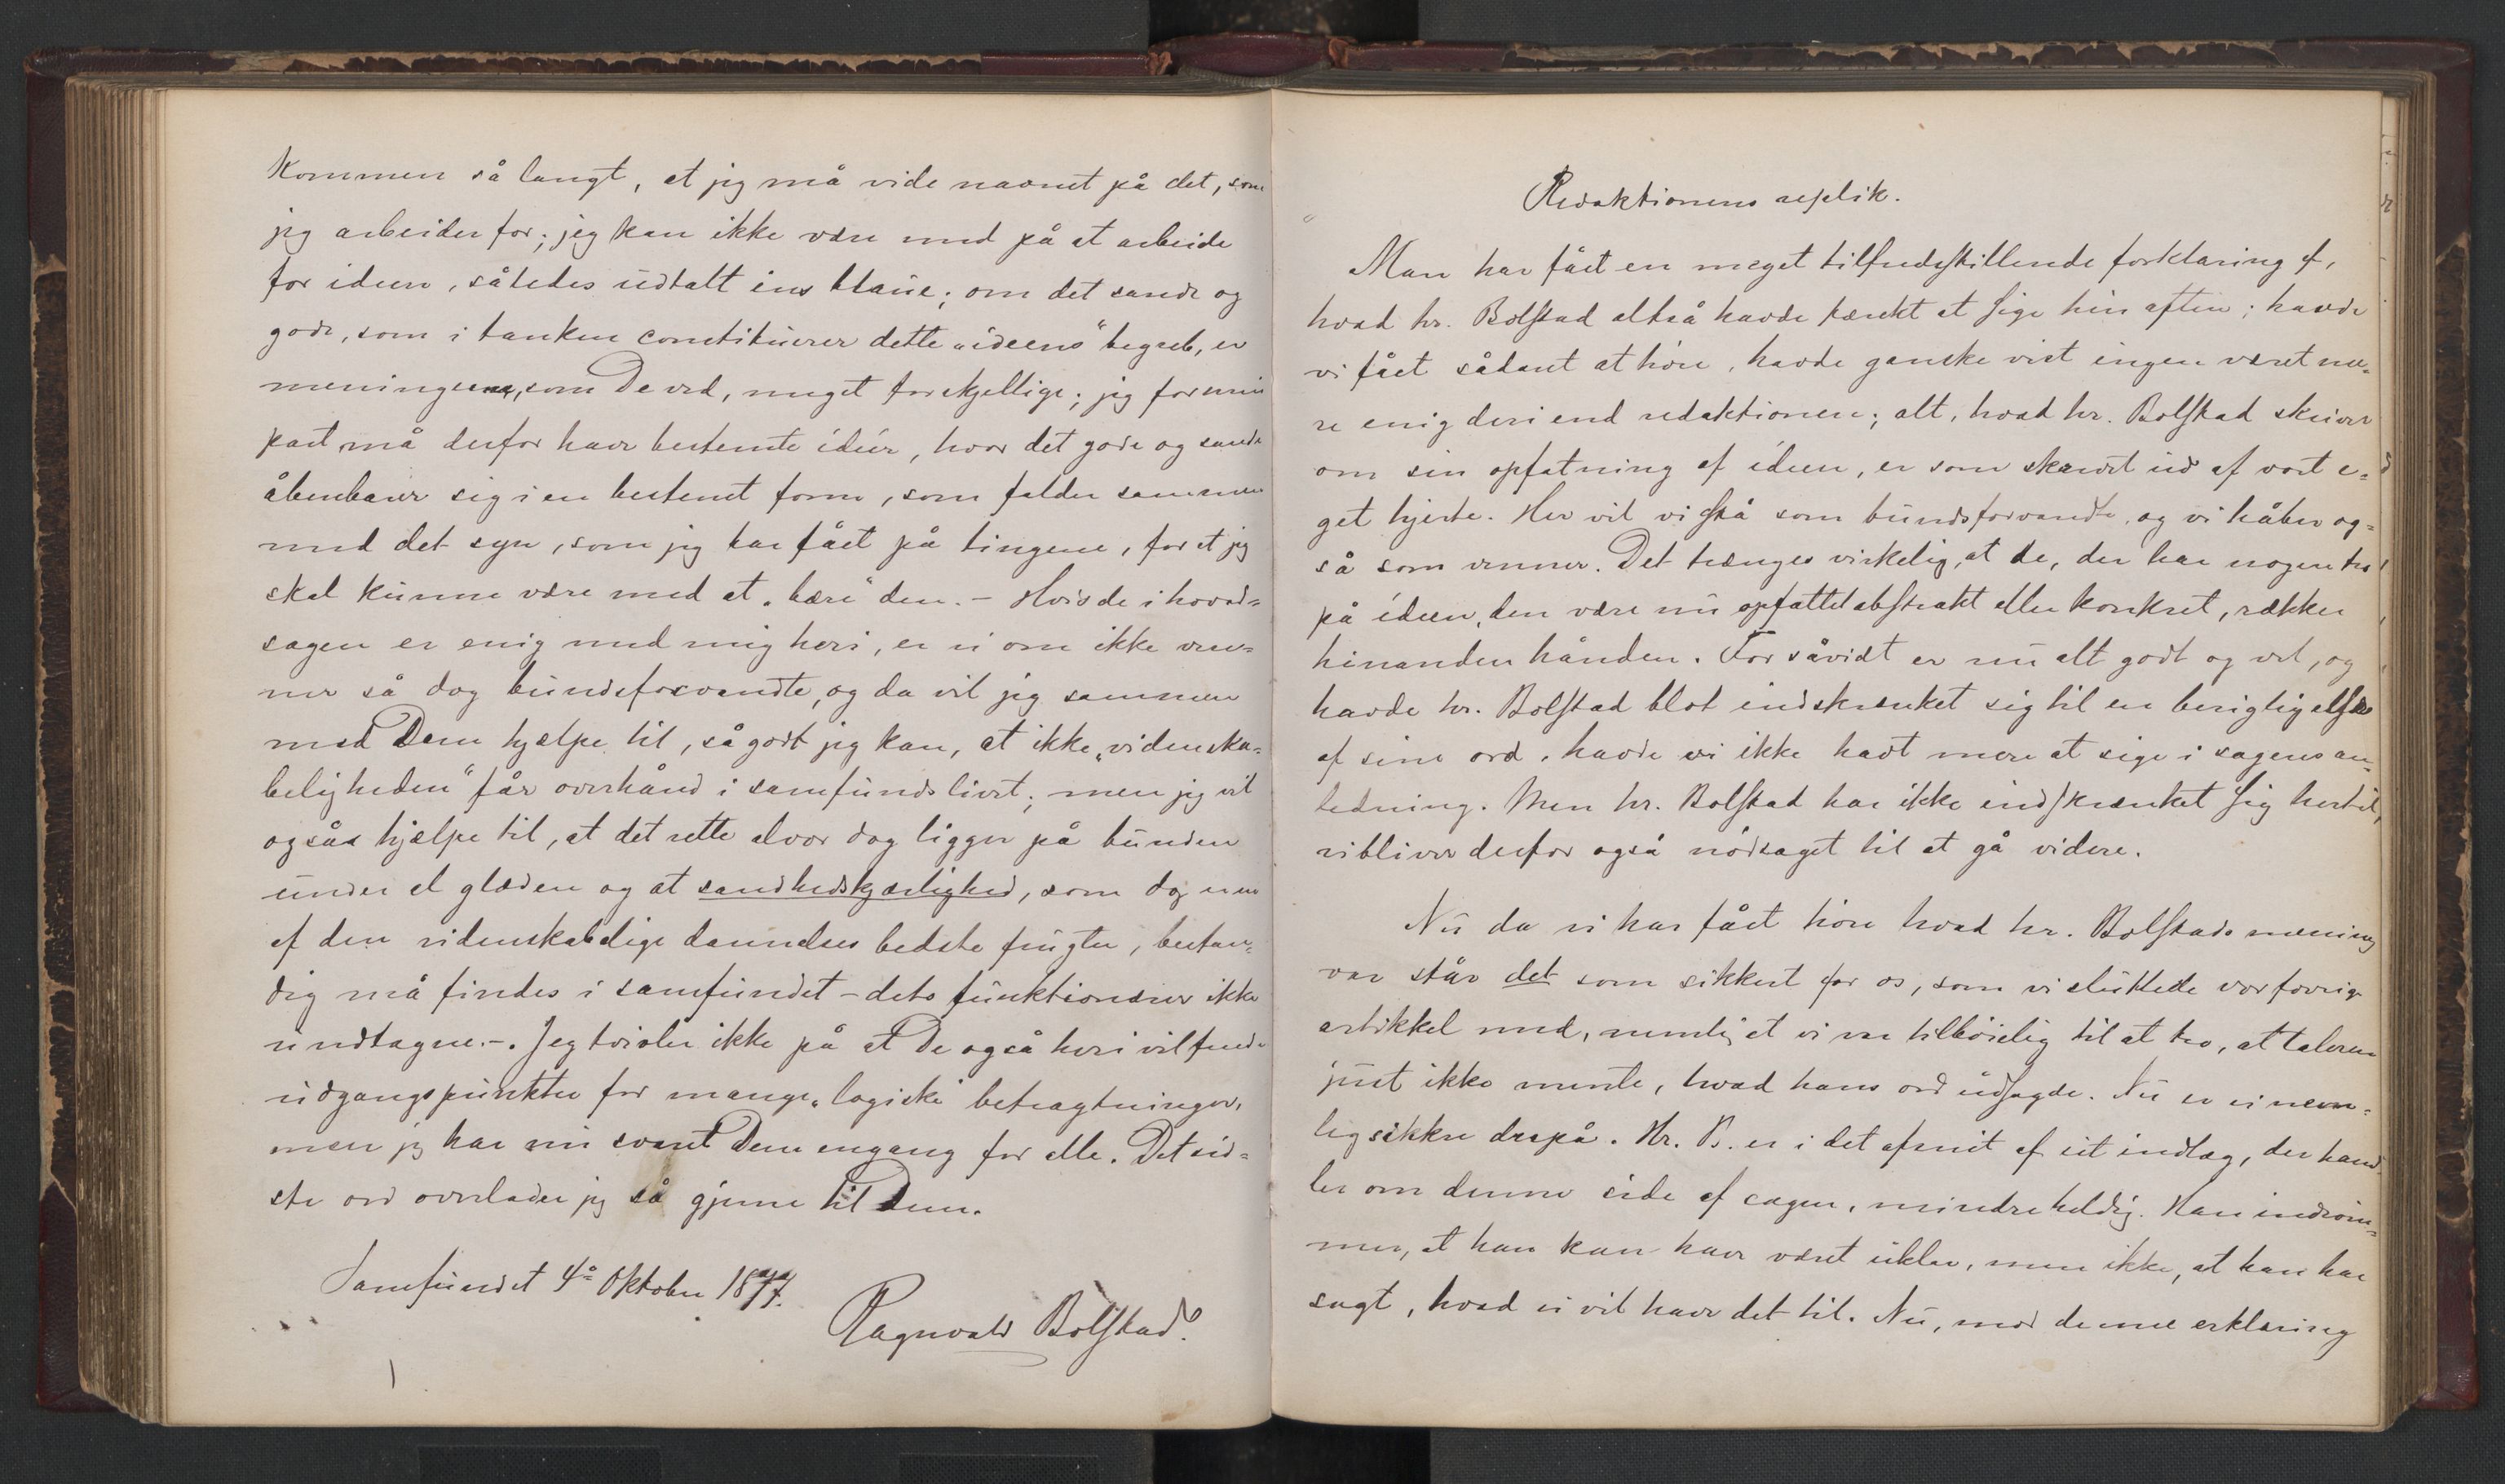 kommen så langt, at jeg må vide navnet på det, som
jeg arbeider for; jeg kan ikke være med på at arbeide
for ideen, således udtalt ins blaue; om det sande og
gode, som i tanken constituerer dette „ideens“ begreb, er
meningerne, som De ved, meget forskjellige; jeg for min
part må derfor have bestemte ideer, hvor det gode og sande
åbenbarer sig i en bestemt form, som falder sammen
med det syn, som jeg har fået på tingene, for at jeg
skal kunne være med at „bære“ den. – Hvis de i hoved=
sagen er enig med mig heri, er vi om ikke ven=
ner så dog bundsforvandte, og da vil jeg sammen
med Dem hjælpe til, så godt jeg kan, at ikke „videnska=
beligheden“ får overhånd i samfundslivet; men jeg vil
også hjælpe til, at det rette alvor dog ligger på bunden
under al glæden og at sandhedskjærlighed, som dog er en
af den videnskabelige dannelses bedste frugter, bestan=
dig må findes i samfundet – dets funktionærer ikke
undtagne. –. Jeg tvivler ikke på at De også heri vil finde
udgangspunkter for mange „logiske“ betragtninger,
men jeg har nu svaret Dem engang for alle. Det sid=
ste ord overlader jeg så gjerne til Dem.
Samfundet 4de Oktober 1877.
Ragnvald Bolstad.
Redaktionens replik.
Man har fået en meget tilfredsstillende forklaring af,
hvad hr. Bolstad altså havde tænkt at sige hin aften; havde
vi fået sådant at høre, havde ganske vist ingen været me=
re enig deri end redaktionen; alt, hvad hr. Bolstad skriver
om sin opfatning af ideen, er som skåret ud af vort e=
get hjerte. Her vil vi stå som bundsforvandte, og vi håber og=
så som venner. Det trænges virkelig, at de, der har nogen tro
på ideen, den være nu opfattet abstrakt eller konkret, rækker
hinanden hånden. Forsåvidt er nu alt godt og vel, og
havde hr. Bolstad blot indskrænket sig til en berigtigelse
af sine ord, havde vi ikke havt mere at sige i sagens an=
ledning. Men hr. Bolstad har ikke indskrænket sig hertil,
vi bliver derfor også nødsaget til at gå videre.
Nu da vi har fået høre hvad hr. Bolstads mening
var står det som sikkert for os, som vi sluttede vor forrige
artikkel med, nemlig at vi var tilbøielig til at tro, at taleren
just ikke mente, hvad hans ord udsagde. Nu er vi nem=
lig sikkre derpå. Hr. B. er i det afsnit af sit indlæg, der hand
ler om denne side af sagen, mindre heldig. Han indrøm=
mer, at han kan have været uklar, men ikke, at han har
sagt, hvad vi vil have det til. Nu, mod denne erklæring